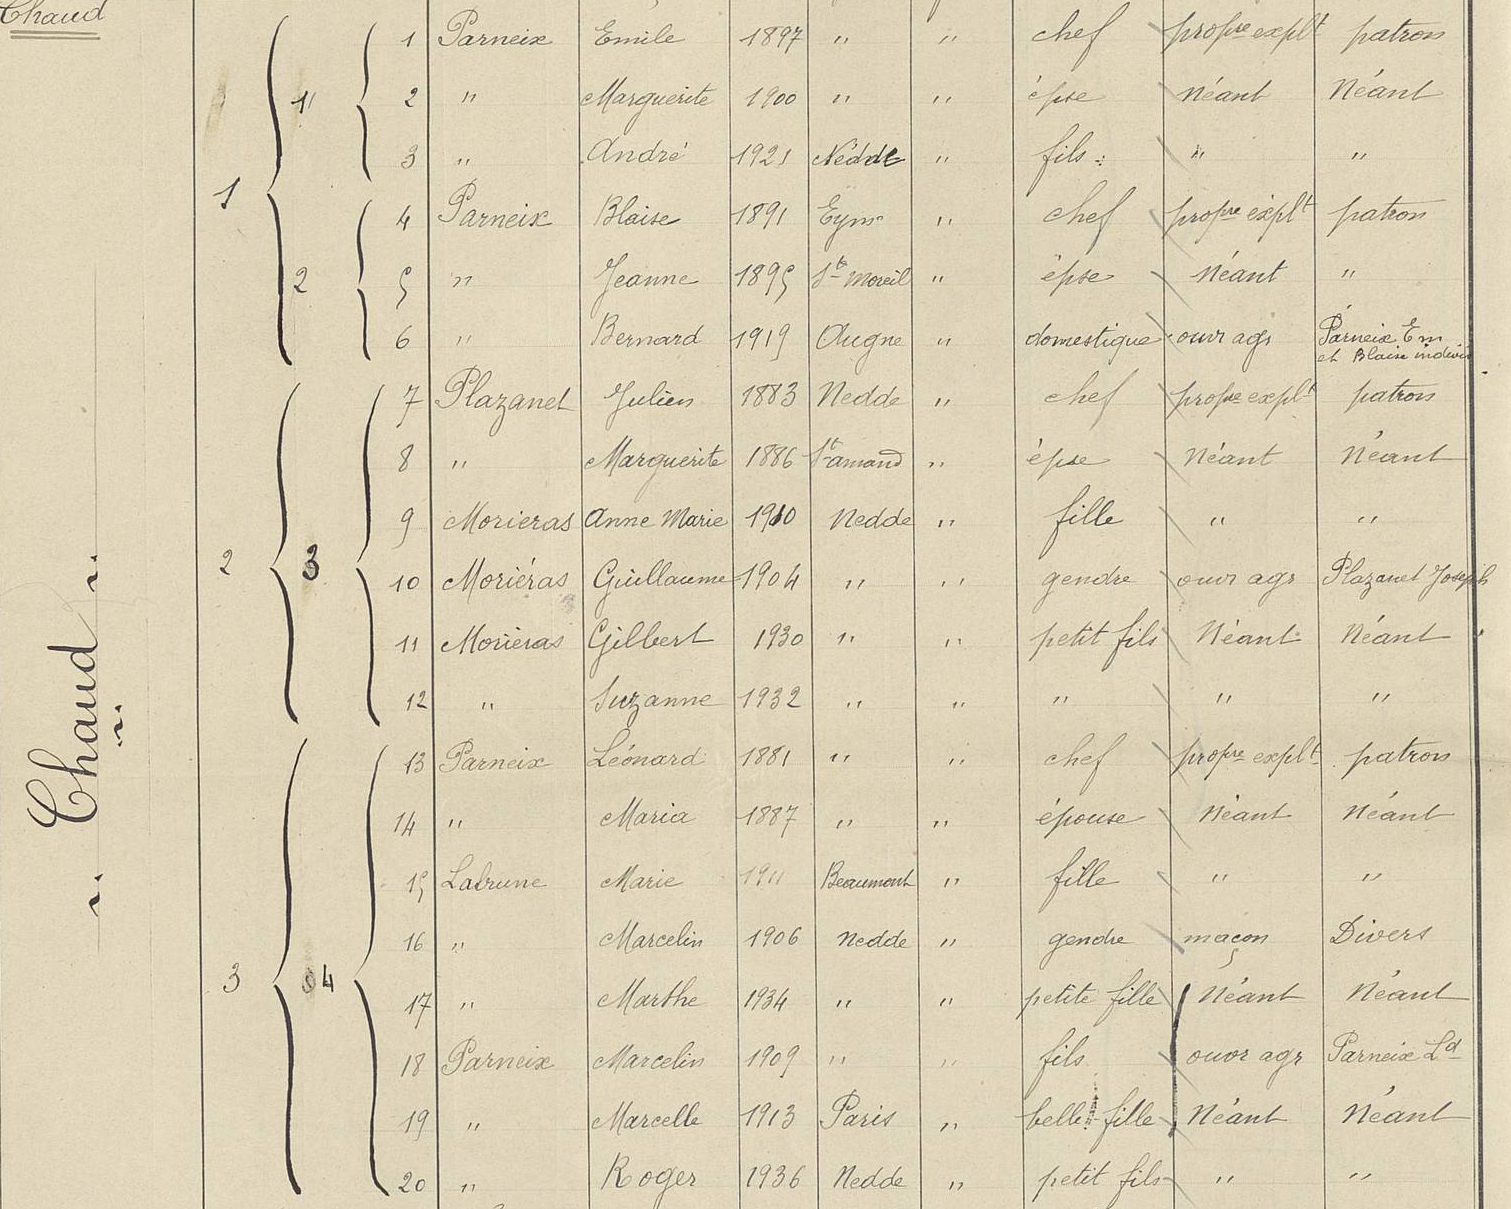 Chaud
1 Parneix Emile 1897 " " chef propre explt patron
1 " 2 " Marguerite 1900 " " épse Néant Néant
3 " André 1921 Nedde " fils " "
1
4 Parneix Blaise 1891 Eym " chef propre explt patron
2 5 " Jeanne 1895 St Moreil " épse Néant "
6 " Bernard 1919 Augne " domestique ouvr agr Parneix Em
et Blaise indivis
7 Plazanet Julien 1883 Nedde " chef propre explt patron
8 " Marguerite 1886 St amand " épse Néant Néant
9 Moriéras Anne Marie 1910 Nedde " fille " "
2 3 10 Moriéras Guillaume 1904 " " gendre ouvr agr Plazanet Joseph
11 Moriéras Gilbert 1930 " " petit fils Néant Néant
12 " Suzanne 1932 " " " " "
Chaud
13 Parneix Léonard 1881 " " chef propre explt patron
14 " Maria 1887 " " épouse Néant Néant
15 Labrune Marie 1911 Beaumont " fille " "
16 " Marcelin 1906 Nedde " gendre maçon Divers
3 4 17 " Marthe 1934 " " petite fille Néant Néant
18 Parneix Marcelin 1909 " " fils ouvr agr Parneix Ld
19 " Marcelle 1913 Paris " belle-fille Néant Néant
20 " Roger 1936 Nedde " petit fils " "